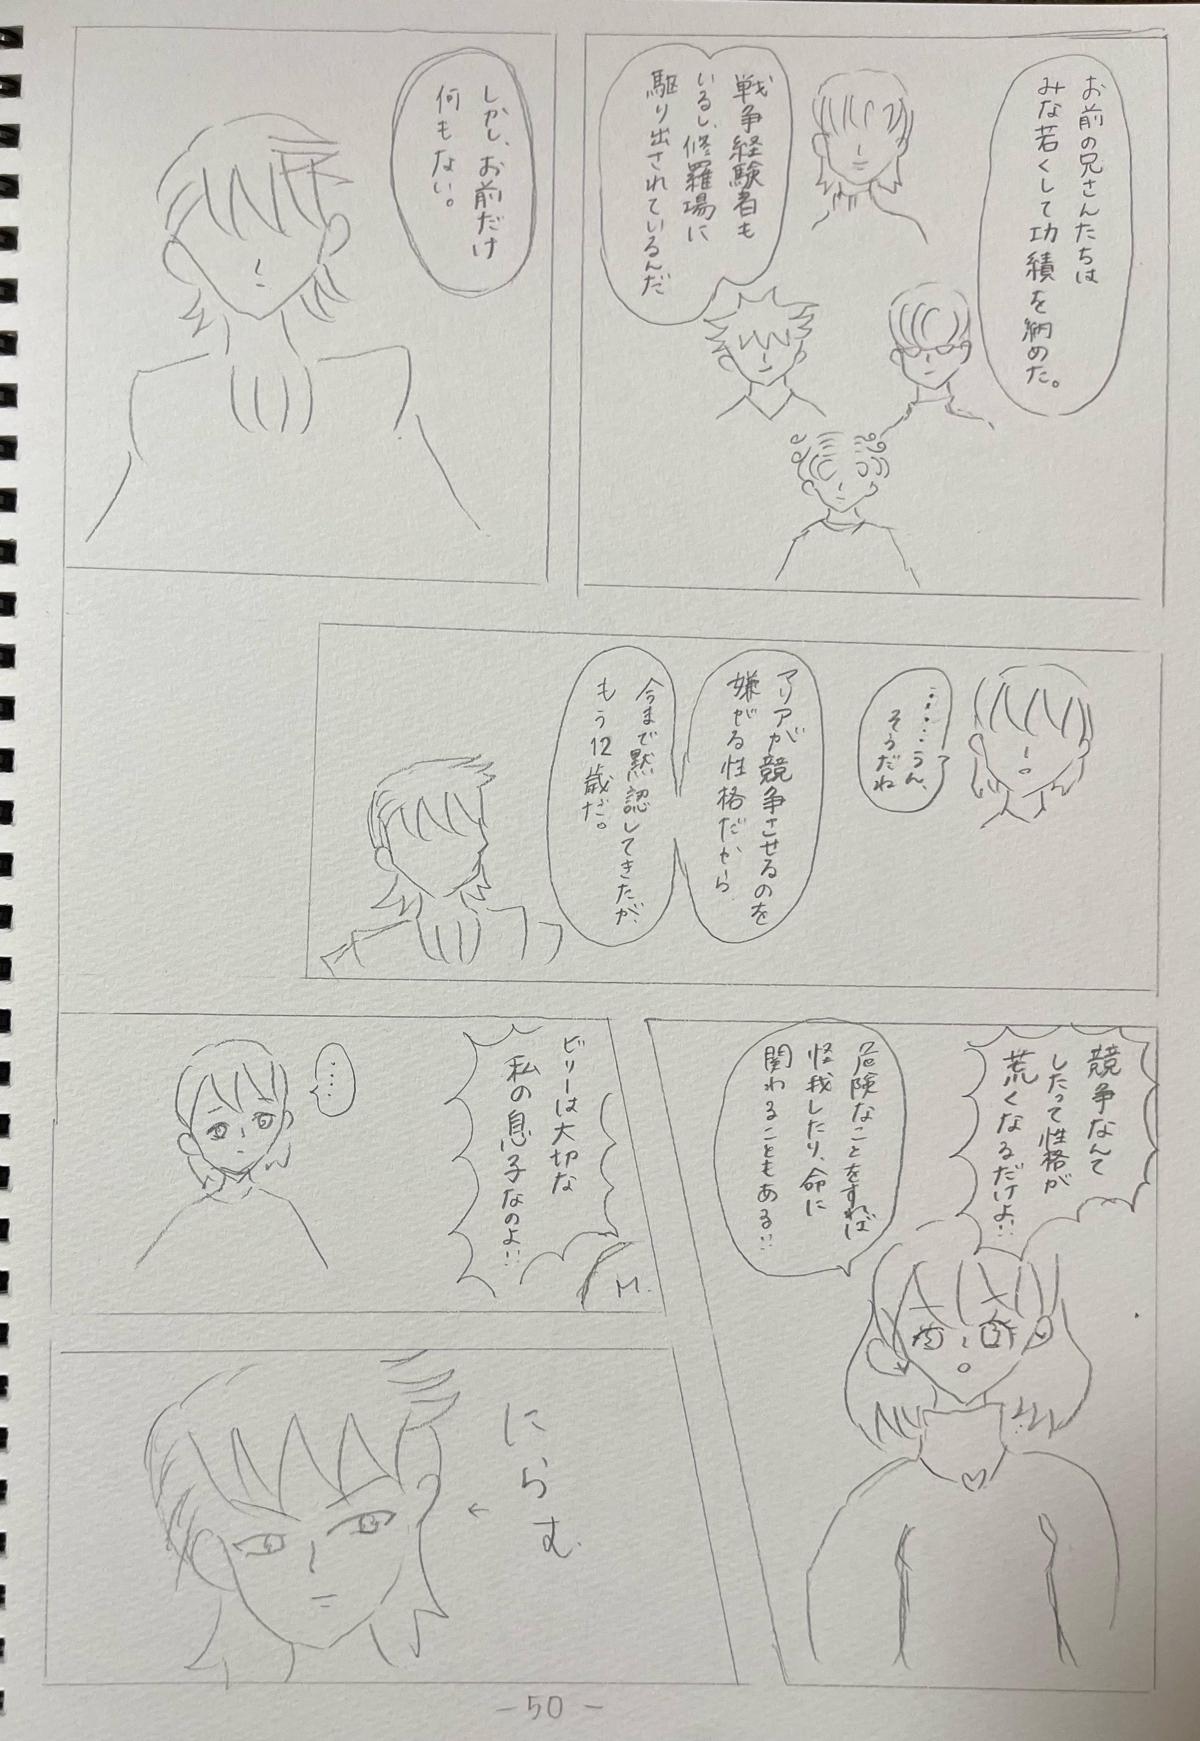 お前の兄さんたちは
みな若くして功績を納めた。
戦争経験者も
いるし、修羅場に
駆り出されているんだ
しかし、お前だけ
何もない。
………うん、
そうだね
アリアが競争させるのを
嫌がる性格だから
今まで黙認してきたが、
もう12歳だ。
競争なんて
したって性格が
荒くなるだけよ!!
危険なことをすれば
怪我したり、命に
関わることもある!!
ビリーは大切な
私の息子なのよ!!
M.
‥‥
にらむ
←
-50-